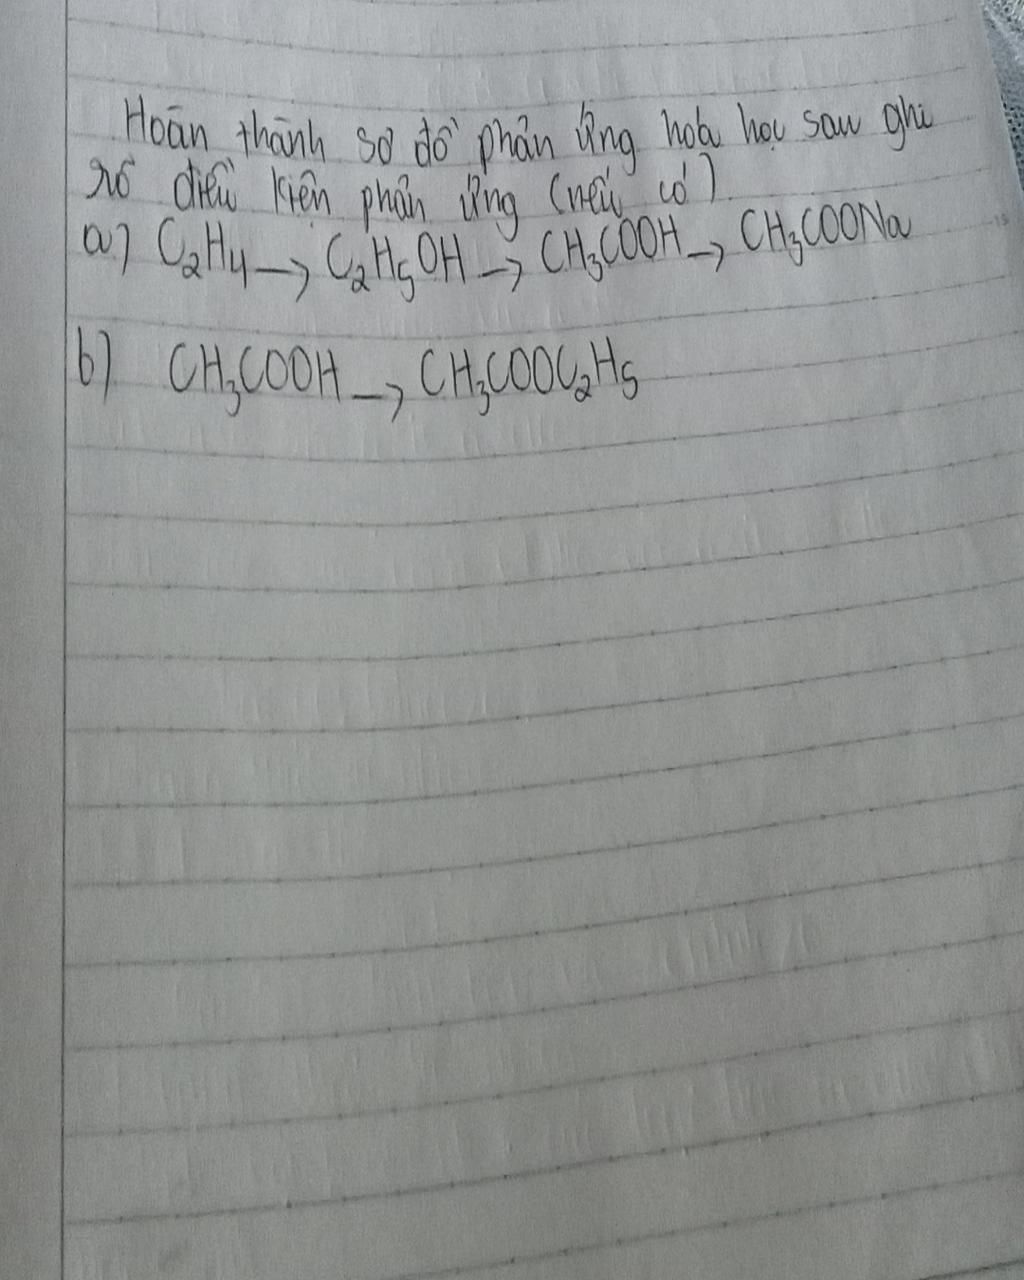 Hoàn thành sơ đồ phản ứng hoá học sau ghi
rõ điều kiện phản ứng (nếu có)
a) C₂H₄ → C₂H₅OH → CH₃COOH → CH₃COONa
b) CH₃COOH → CH₃COOC₂H₅